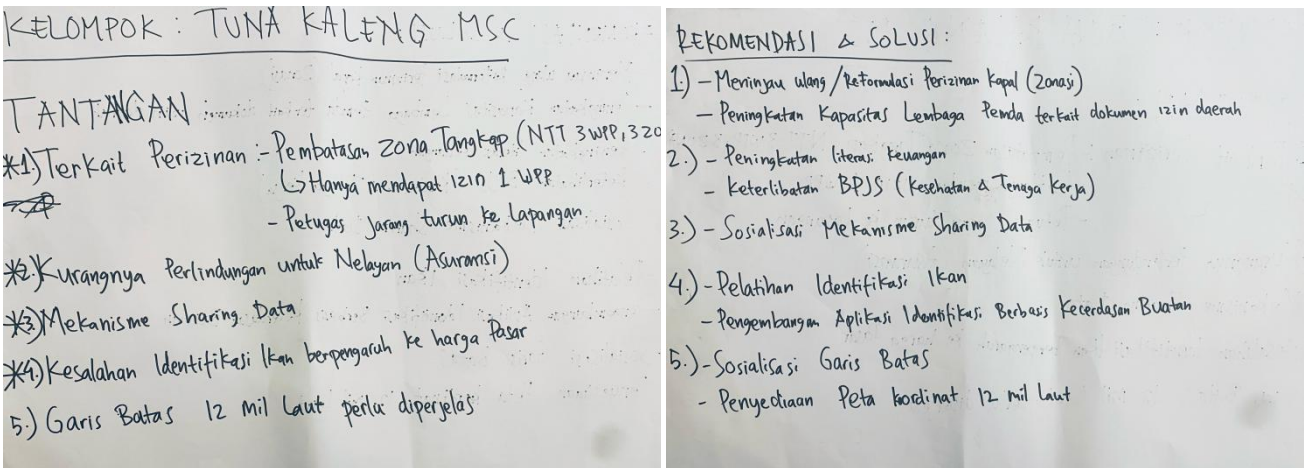 KELOMPOK : TUNA KALENG MSC
TANTANGAN
*1.) Terkait Perizinan :- Pembatasan Zona Tangkap (NTT 3 WPP, 3 zo
↳ Hanya mendapat izin 1 WPP
- Petugas jarang turun ke Lapangan.
*2.) Kurangnya Perlindungan untuk Nelayan (Asuransi)
*3.) Mekanisme Sharing Data
*4.) Kesalahan Identifikasi Ikan berpengaruh ke harga Pasar
5.) Garis Batas 12 mil Laut perlu diperjelas
REKOMENDASI & SOLUSI :
1.) - Meninjau ulang / Reformulasi Perizinan Kapal (Zonasi)
- Peningkatan Kapasitas Lembaga Pemda terkait dokumen izin daerah
2.) - Peningkatan literasi Keuangan
- Keterlibatan BPJS (Kesehatan & Tenaga Kerja)
3.) - Sosialisasi Mekanisme Sharing Data
4.) - Pelatihan Identifikasi Ikan
- Pengembangan Aplikasi Identifikasi Berbasis Kecerdasan Buatan
5.) - Sosialisasi Garis Batas
- Penyediaan Peta kordinat 12 mil Laut